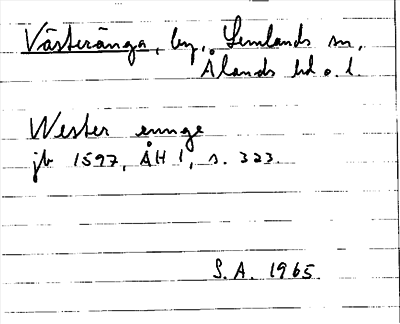 Västeränga, by, Lemlands sn,
Ålands hd o. l.
Wester ennge
jb 1597, ÅH 1, s. 323.
S.A. 1965